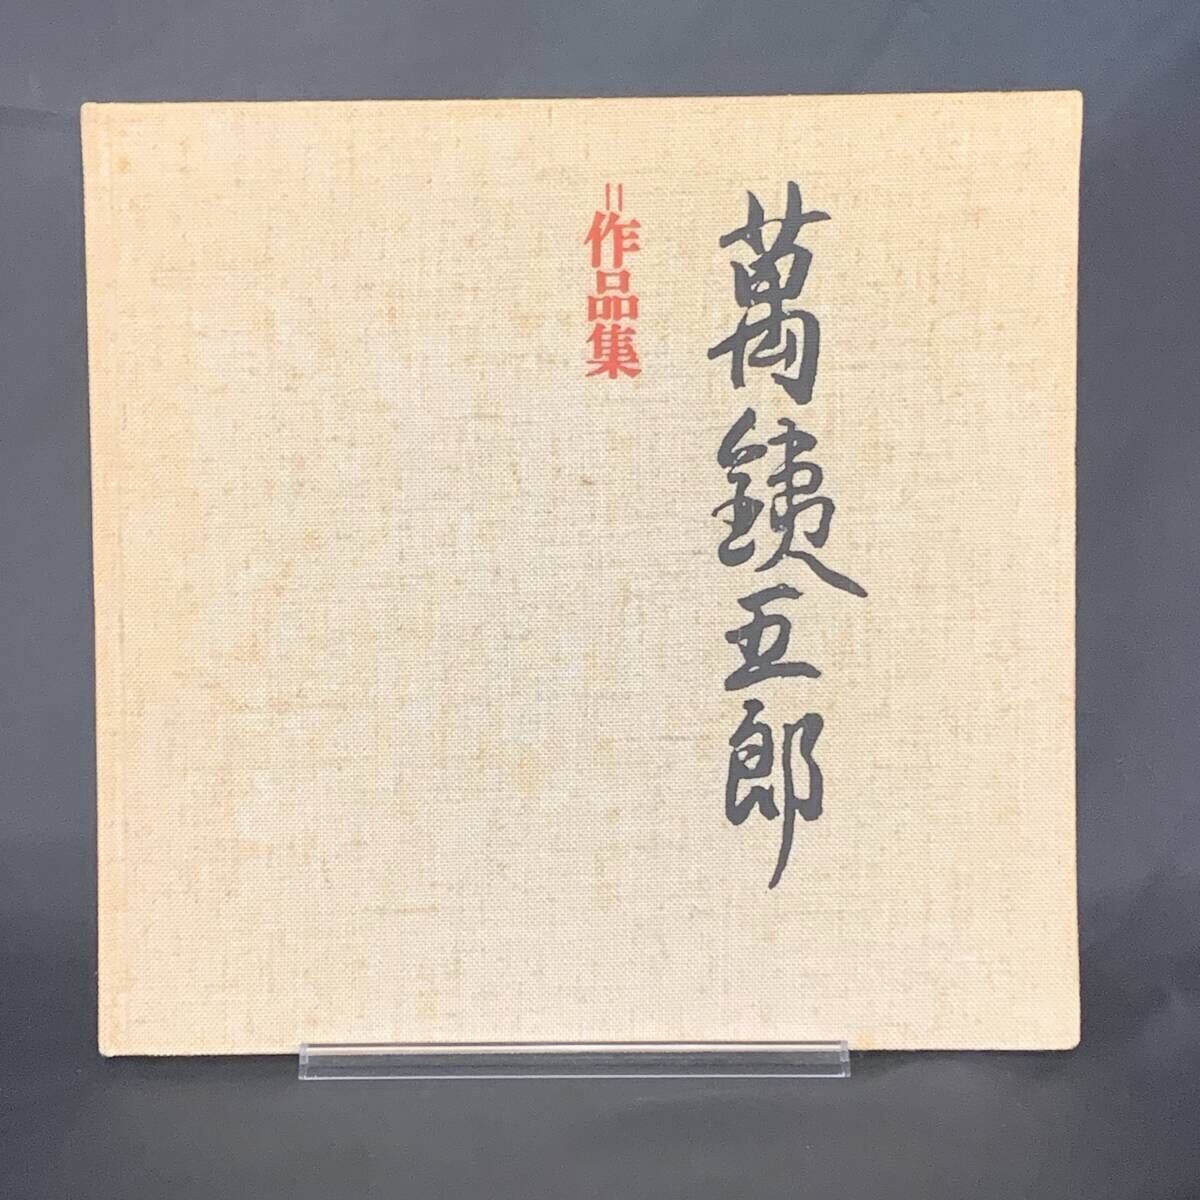 萬銕五郎
=作品集